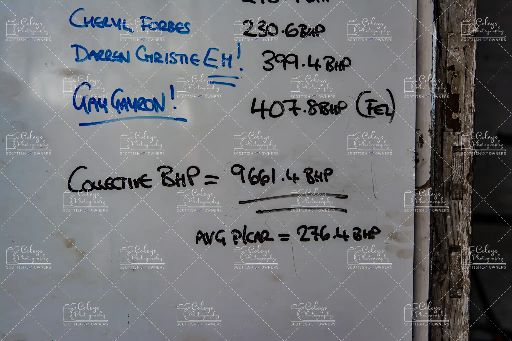 CHERYL FORBES 230.6BHP
DARREN CHRISTIE EH! 399.4BHP
GAYGAYRON! 407.8BHP (FE2)
COLLECTIVE BHP = 9661.4 BHP
AVG P/CAR = 276.4 BHP